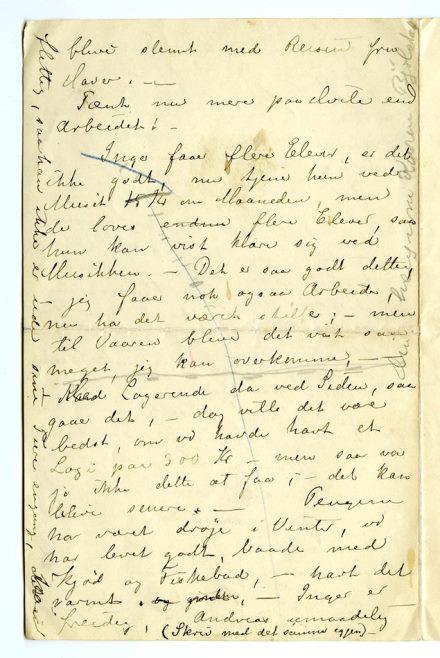 blive slemt med Reisen fra
Haver. —
Tænk nu mere paa hvile end
Arbeidet! —
Inga faar flere Elever, er det
ikke godt, nu tjene hun ved
Musik Kr om Maaneden, men
de loves endnu flere Elever, saa
hun kan vist klare sig ved
Musikken. — Det er saa godt dette,
— jeg faaer nok ogsaa Arbeide
nu ha det været stille; — men
til Vaaren blive det vist saa
meget, jeg kan overkomme, —
Med Logerende da ved Siden, saa
gaae det, — dog ville det være
bedst, om vi havde havt et
Logi paa 300 Kr — men saa va
jo ikke dette at faa; — det kan
blive senere. — Pengene
har været drøje i Vinter, vi
har levet godt, baade med
Kjød og Fiskebad, — havt det
varmt, — Inger er
freidig, Andreas umaadelig
(Skriv med det samme igjen) —
flettig, saa han ikke er ude sine Ture engang,